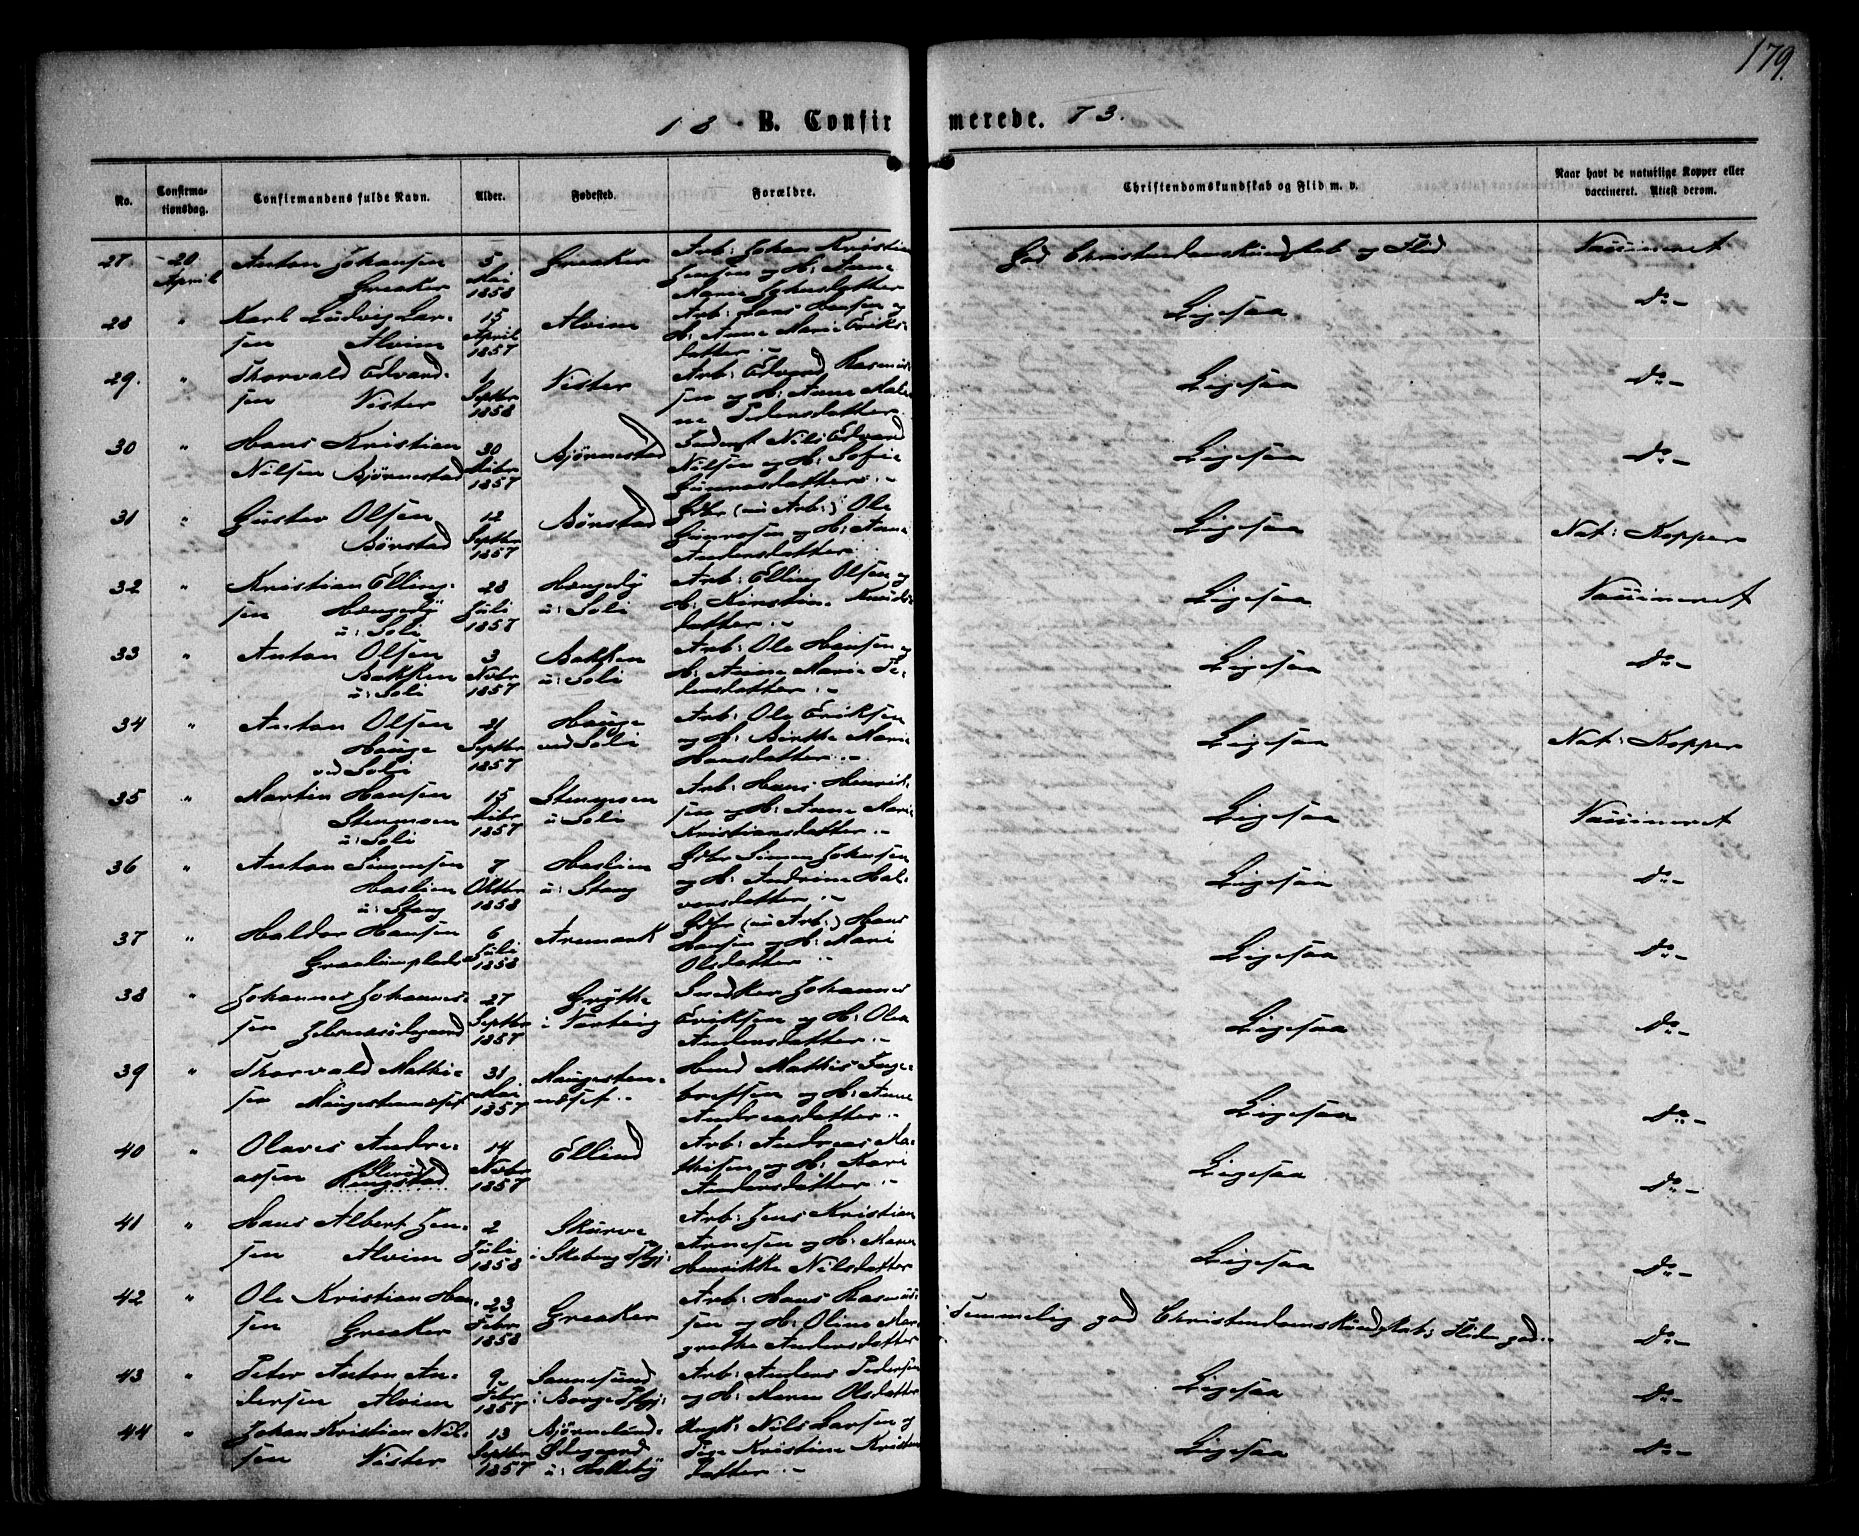 179.
18 B. Confirmerede. 73.
No.
Confirmationsdag.
Confirmandens fulde Navn.
Alder.
Fødested.
Forældre.
Christendomskundskab og Flid m. v.
Naar havt de naturlige Kopper eller vaccineret. Attest derom.
27. 20 April Anton Johansen Greaker 5 Mai 1858 Greaker Arb: Johan Kristian Jensen og H: Anne Marie Johnsdatter God Christendomskundskab og Flid Vaccineret
28 " Karl Ludvig Larsen Alvim 15 April 1857 Alvim Arb: Lars Hansen og H: Anne Marie Eriksdatter.- Ligesaa Do-
29. " Thorvald Edvardsen Vister 1 Septbr 1858 Vister Arb: Edvard Rasmussen og H: Anne Malene Pedersdatter. Ligesaa Do-
30 " Hans Kristian Nilsen Bjørnestad 30 1857 Bjørnestad Inderst Nils Edvard Nilsen og H: Sofie Gunersdatter.- Ligesaa Do-
31 " Gustav Olsen Børstad 12 Septbr 1857 Børstad Gbr (nu Arb:) Ole og H: Anne Andersdatter Ligesaa Nat: Kopper
32 " Kristian Ellingsen Hengebÿ u: Soli 28 Juli 1857 Hengebÿ u: Soli Arb: Elling Olsen og H: Kirstine Knudsdatter.- Ligesaa Vaccineret
33 " Anton Olsen Bakken u: Soli 3 Novbr 1857 Bakken u: Soli Arb: Ole Hansen og H: Anne Marie Pedersdatter.- Ligesaa Do-
34 " Anton Olsen Hauge ved Soli 21 Septbr 1857 Hauge ved Soli Arb: Ole Eriksen og H: Birthe Marie Hansdatter.- Ligesaa Nat: Kopper
35 " Martin Hansen Stenmoen u: Soli 15 1857 Stenmoen u: Soli Arb: Hans Henriksen og H: Anne Marie Kristiansdatter.- Ligesaa Vaccineret
36 " Anton Simensen Haslien u: Stang 7 Oktbr 1858 Haslien u: Stang Gbr Simen Johnsen og H: Andrine Halvorsdatter.- Ligesaa Do-
37 " Haldor Hansen Graalumplads 6 Juli 1858 Aremark Gbr (nu Arb:) Hans Hansen og H: Marie Olsdatter.- Ligesaa Do-
38 " Johannes Johannessen 27 Septbr 1857 Grÿtte i Varteig Snedker Johannes Eriksen og H: Olea Andersdatter.- Ligesaa Do-
39 " Thorvald Mathisen Haugestenæset 31 Mai 1857 Haugestenæset.- Mathis og H: Anne Andreasdatter.- Ligesaa Do-
40 " Olaves Andreassen Ringstad 14 Novbr 1857 Ellind Arb: Andreas Mathisen og H: Kari Andersdatter.- Ligesaa Do-
41 " Hans Albert Jensen Alvim 2 Juli 1858 Skurve i Skeberg Pgj: Arb: Jens Kristian Arnesen og H: Maren Henrikke Nilsdatter Ligesaa Do-
42 " Ole Kristian Hansen Greaker 23 Febr 1858 Greaker Arb: Hans Rasmussen og H: Oline Margrethe Andersdatter. Temmelig god Christendomskundskab; Fliden god.- Do-
43 " Peter Anton Andersen Alvim 9 Febr 1857 Sannesund i Borge Pgj: Arb: Anders Pedersen og H: Karen Olsdatter Ligesaa Do-
44 " Johan Kristian Nilsen Vister 13 Septbr 1857 Bjørnelund Ødegaard u: Hollebÿ Ungk: Nils Larsen og Pige Kristine Kristensdatter.- Ligesaa Do-